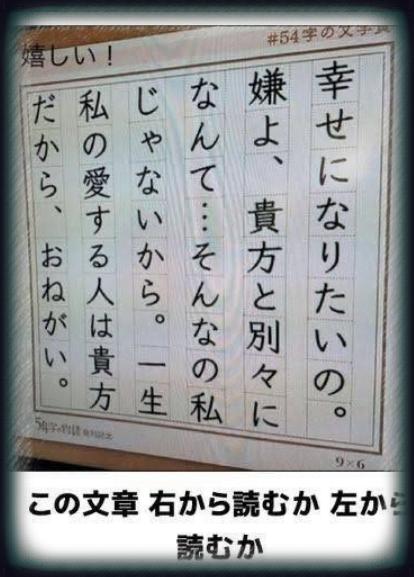 嬉しい！
#54字の文学賞
幸せになりたいの。
嫌よ、貴方と別々に
なんて…そんなの私
じゃないから。一生
私の愛する人は貴方
だから、おねがい。
54字の物語
9×6
この文章 右から読むか 左から
読むか